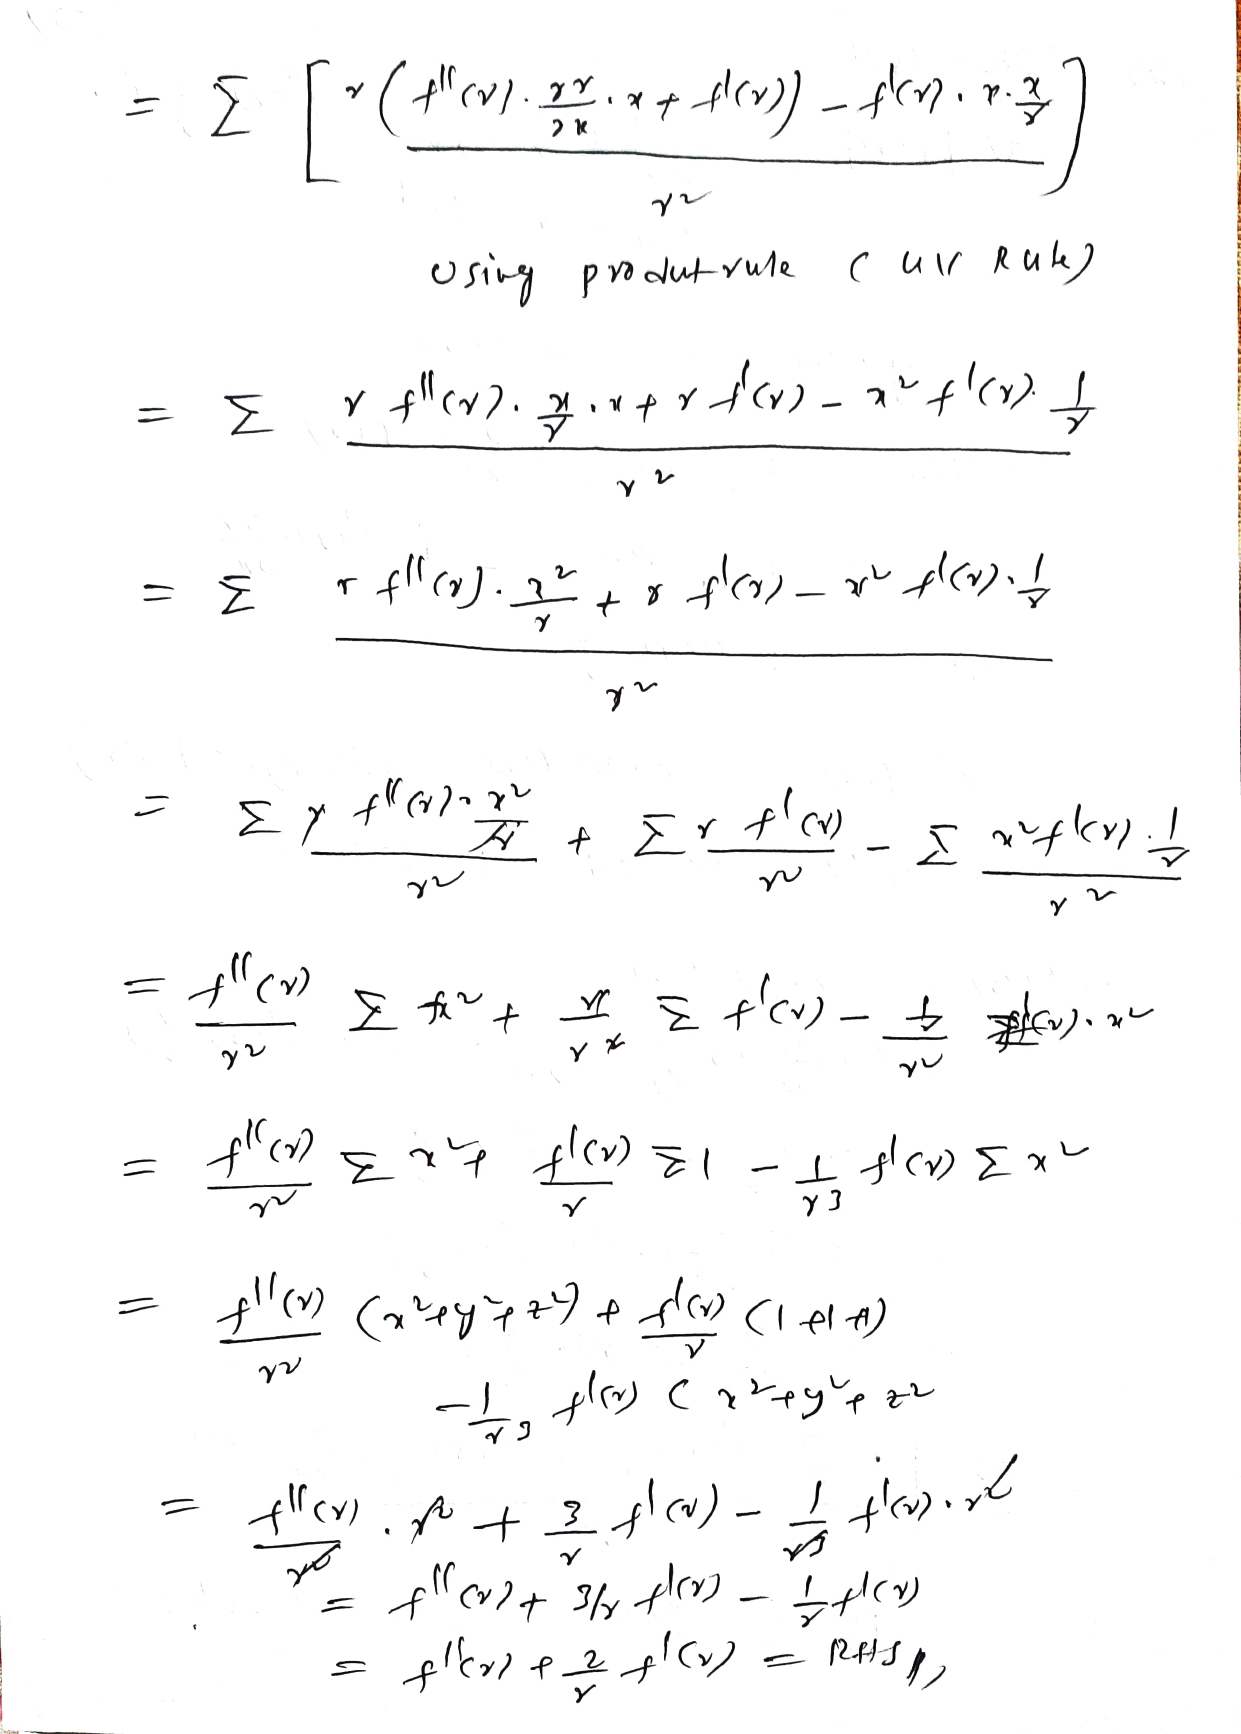 = Σ [ r ( f''(r) · ∂r/∂x · x + f'(r) ) − f'(r) · x · x/r ] / r²
Using produt rule ( UV Rule)
= Σ ( r f''(r) · x/r · x + r f'(r) − x² f'(r) · 1/r ) / r²
= Σ ( r f''(r) · x²/r + r f'(r) − x² f'(r) · 1/r ) / r²
= Σ ( r f''(r) · x²/r ) / r² + Σ r f'(r) / r² − Σ ( x² f'(r) · 1/r ) / r²
= f''(r)/r² Σ x² + r/r² Σ f'(r) − (1/r)/r² Σ f'(r) · x²
= f''(r)/r² Σ x² + f'(r)/r Σ 1 − 1/r³ f'(r) Σ x²
= f''(r)/r² (x²+y²+z²) + f'(r)/r (1+1+1)
− 1/r³ f'(r) ( x²+y²+z²
= f''(r)/r² · r² + 3/r f'(r) − 1/r³ f'(r) · r²
= f''(r) + 3/r f'(r) − 1/r f'(r)
= f''(r) + 2/r f'(r) = RHS //,